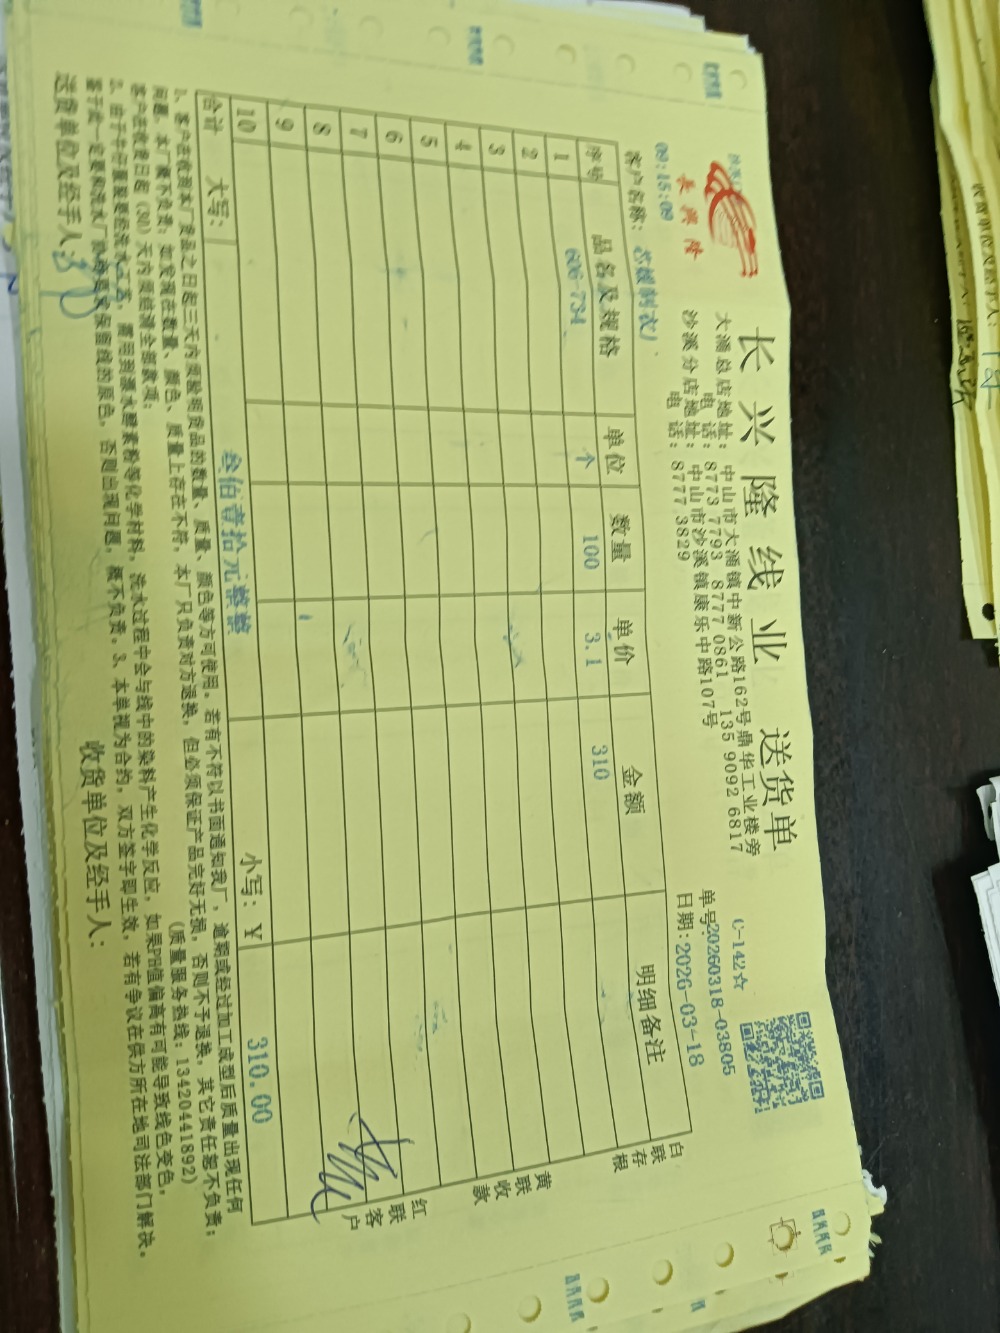 长兴隆线业 送货单
长兴隆
大涌总店地址：中山市大涌镇中新公路162号鼎华工业楼旁
电话：8773 7793 8777 0861 135 9092 6817
沙溪分店地址：中山市沙溪镇康乐中路107号
电话：8777 3829
C-142☆
单号：20260318-03805
日期：2026-03-18
09:15:09
客户名称：芯媛制衣厂
序号 品名及规格 单位 数量 单价 金额 明细备注
1 606-734 个 100 3.1 310
2
3
4
5
6
7
8
9
10
合计 大写： 叁佰壹拾元整 小写：￥ 310.00
白联存根
黄联收款
红联客户
1、客户在收到本厂货品之日起三天内须验明货品的数量、质量、颜色等方可使用。若有不符以书面通知我厂，逾期或经过加工成型后质量出现任何
问题，本厂概不负责；如发现在数量、颜色、质量上存在不符，本厂只负责对方退换，但必须保证产品完好无损，否则不予退换，其它责任恕不负责；
客户在收货日起（30）天内须结清全部款项； （质量服务热线：13420441892）
2、由于牛仔服装要经洗水工艺，需用到漂水酵素粉等化学材料，洗水过程中会与线中的染料产生化学反应，如果PH值偏高有可能导致线色变色，
鉴于此一定要和洗水厂说明要求保留线的原色，否则出现问题，概不负责。3、本单视为合约，双方签字即生效，若有争议在供方所在地司法部门解决。
送货单位及经手人： 收货单位及经手人：
收货单位及经手人：